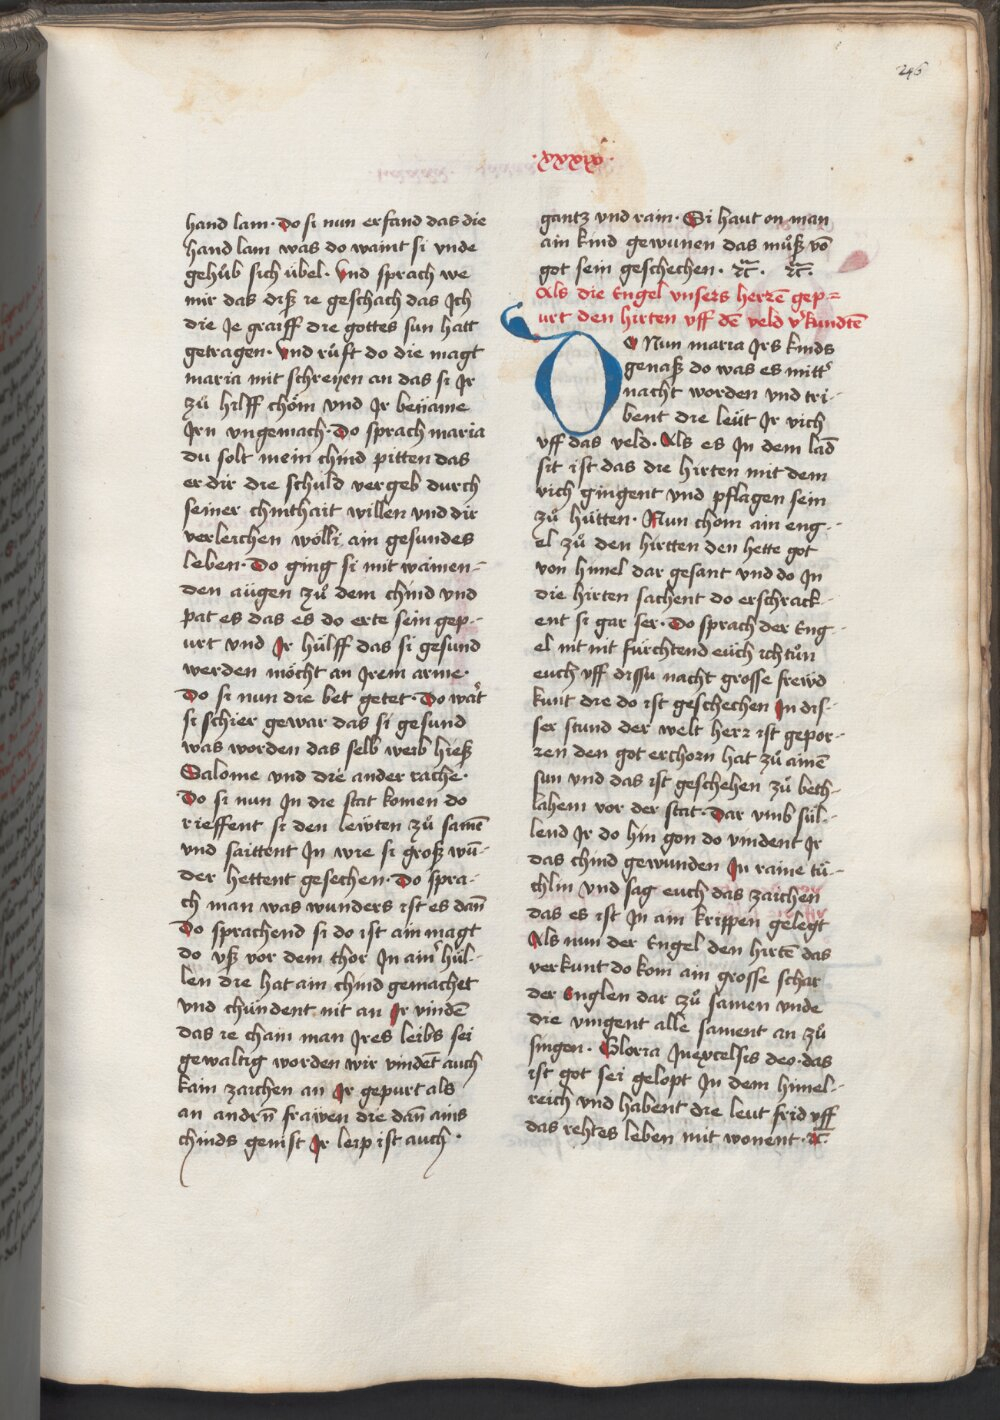 246
·xxxix·
hand lam· Do si nun erfand das die
hand lam was do waint si vnde
gehůb sich übel· Vnd sprach we
mir das diß ie geschach das Ich
die Je graiff die gottes sun hatt
getragen· Vnd růft do die magt
maria mit schreyen an das si Jr
zů hilff chöm vnd Jr betäme
Jrn vngemach· Do sprach maria
du solt mein chind pitten das
er dir die schuld vergeb durch
seiner chinthait willen vnd dir
verleichen wölli ain gesundes
leben· Do ging si mit wainen-
den aügen zů dem chind vnd
pat es das es do erte sein gep-
urt vnd Jr hülff das si gesund
werden möcht an Jrem arme·
Do si nun die bet getet· Do wart
si schier gewar das si gesund
was worden das selb weib hieß
Salome vnd die ander rache·
Do si nun Jn die stat komen do
rieffent si den lewten zů samē
vnd saittent Jn wie si groß wū-
der hettent gesechen· Do spra-
ch man was wunders ist es dañ
Do sprachend si do ist ain magt
do vß vor dem thor Jn ain̾ hül-
len die hat ain chind gemachet
vnd chündent nit an Jr vindē
das ie chain man Jres leibs sei
gewaltig worden wir vindēt auch
kain zaichen an Jr gepurt als
an andrn̄ frawen die dañ ains
chinds genist Jr leip ist auch·
gantz vnd rain· Si haut on man
ain kind gewunen das můß vō
got sein geschechen· ꝛc̄· ꝛc̄·
Als die Engel vnsers herrē gep=
urt den hirten vff dē veld v̾kundtē
Do Nun maria Jrs kinds
genaß do was es mitt̾
nacht worden vnd tri-
bent die leüt Jr vich
vff das veld· Als es Jn dem lād
sit ist das die hirten mit dem
vich gingent vnd pflagen sein
zů hütten· Nun chom ain eng-
el zů den hirtten den hette got
von himel dar gesant vnd do Jn
die hirten sachent do erschrack-
ent si gar ser· Do sprach der Eng-
el nit nit fürchtend eüch ich tůn
euch vff dissü nacht grosse frewd
kunt die do ist geschechen Jn dis-
ser stund der welt herr ist gepor-
ren den got erchorn hat zů ainē
sun vnd das ist geschehen zů beth-
lahem vor der stat· Dar vmb sül-
lend Jr do hin gon do vindent Jr
das chind gewunden Jn raine tü-
chlin vnd sag euch das zaichen
das es ist Jn ain krippen gelegt
Als nun der Engel den hirtē das
verkunt do kom ain grosse schar
der Englen dar zů samen vnde
die vingent alle sament an zů
singen· Gloria Jn excelsis deo· das
ist got sei gelopt Jn dem himel-
reich vnd habent die leut frid vff
das rehtes leben mit wonent· ꝛc̄